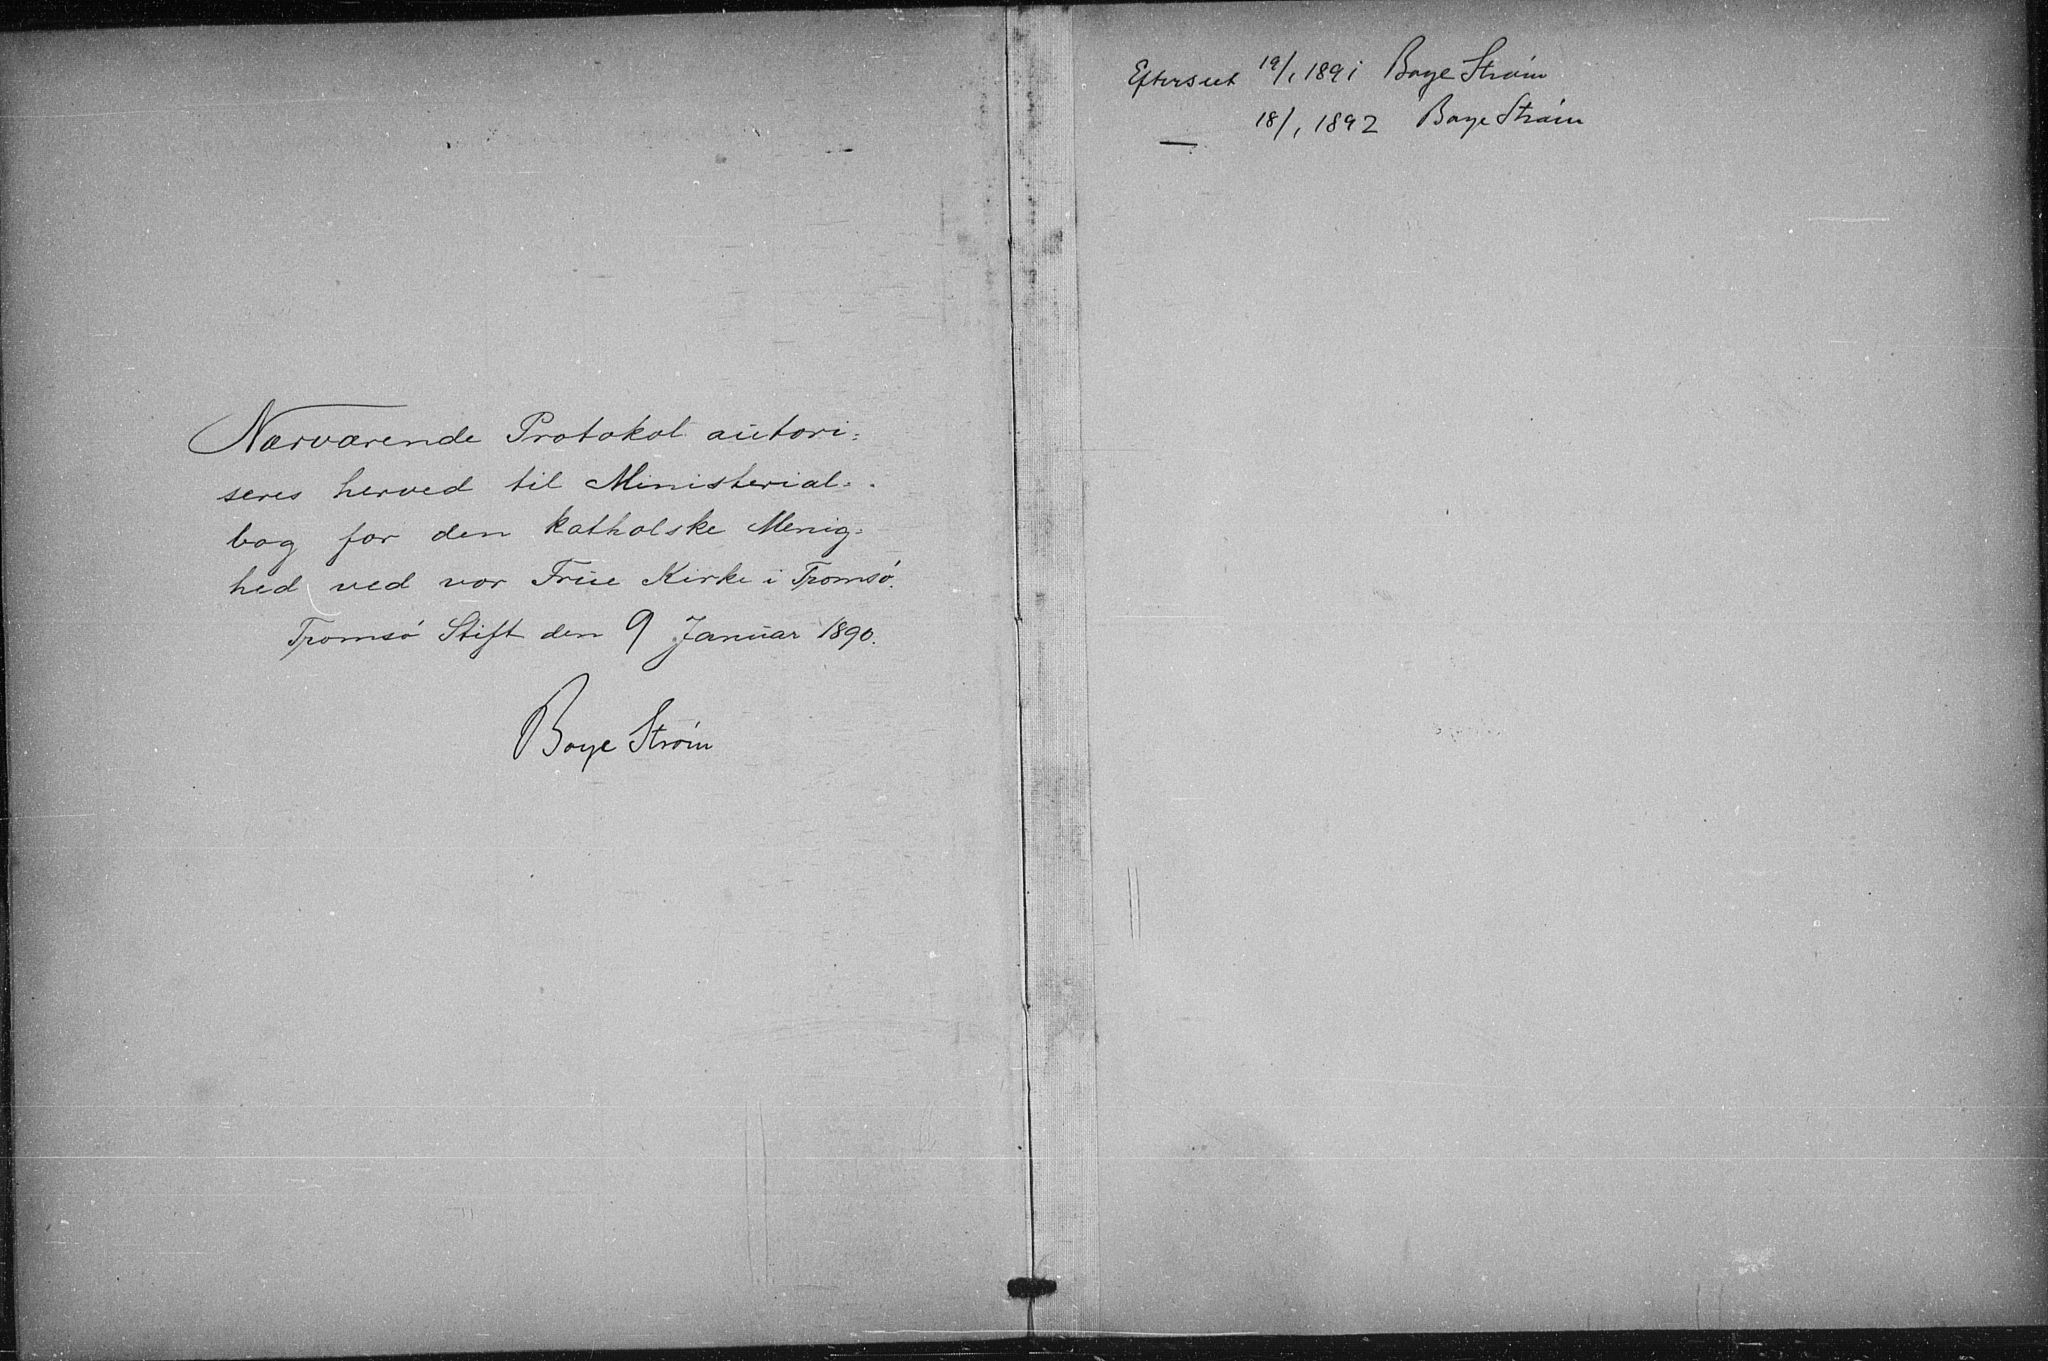 Nærværende Protokol autori=
seres herved til Ministerial=
bog for den katholske Menig=
hed ved vor Frue Kirke i Tromsø.
Tromsø Stift den 9 Januar 1890.
Boye Strøm
Efterseet 19/1 1891 Boye Strøm
— 18/1 1892 Boye Strøm